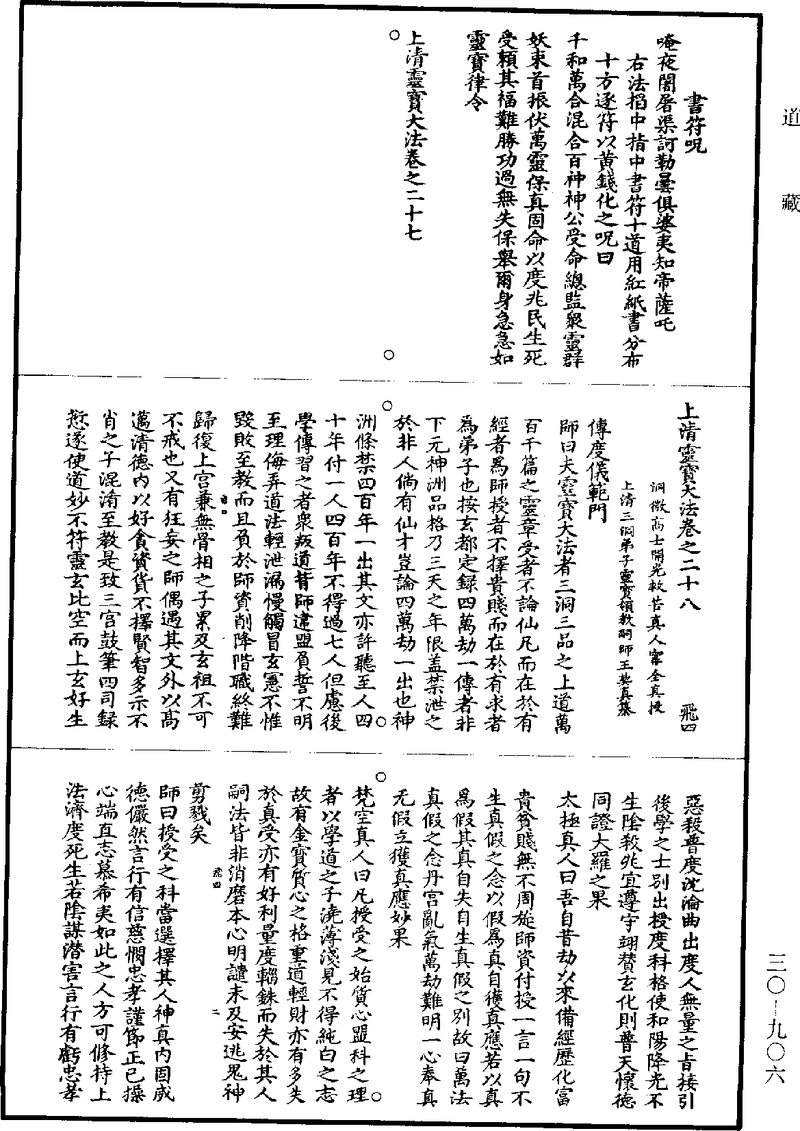 道藏
書符呪
唵夜闍屠渠訶勒曇俱婆夷知帝薩吒
右法掐中指中書符十道用紅紙書分布
十方逐符以黄錢化之呪曰
千和萬合混合百神神公受命總監衆靈群
妖束首振伏萬靈保真固命以度兆民生死
受賴其福難勝功過無失保舉爾身急急如
靈寶律令
上清靈寶大法卷之二十七
上清靈寶大法卷之二十八
飛四
洞微高士開光救苦真人甯全真授
上清三洞弟子靈寶領教嗣師王契真纂
傳度儀範門
師曰夫靈寶大法者三洞三品之上道萬
百千篇之靈章受者不論仙凡而在於有
經者爲師授者不擇貴賤而在於有求者
爲弟子也按玄都定録四萬劫一傳者非
下元神洲品格乃三天之年限蓋禁泄之
於非人倘有仙才豈論四萬劫一出也神
洲條禁四百年一出其文亦許聽至人四
十年付一人四百年不得過七人但慮後
學傳習之者衆叛道背師違盟負誓不明
至理侮弄道法輕泄漏慢觸冒玄憲不惟
毀敗至教而且負於師資削降階職終難
歸復上宫兼無骨相之子累及玄祖不可
不戒也又有狂妄之師偶遇其文外以高
邁清德内以好貪資貨不擇賢智多示不
肖之子混淆至教是致三宫鼓筆四司録
愆遂使道妙不符靈玄比空而上玄好生
惡殺普度沈淪曲出度人無量之旨接引
後學之士别出授度科格使和陽降光不
生陰殺兆宜遵守翊赞玄化則普天懷德
同證大羅之果
太極真人曰吾自昔劫以來備經歷化富
貴貧賤無不周旋師資付授一言一句不
生真假之念以假爲真自獲真應若以真
爲假其真自失自生真假之别故曰萬法
真假之念丹宫亂氣萬劫難明一心奉真
无假立獲真應妙果
梵空真人曰凡授受之始質心盟科之理
者以學道之子澆薄淺見不得純白之志
故有金寶質心之格重道輕財亦有多失
於真受亦有好利量度輜銖而失於其人
嗣法皆非消磨本心明譴未及安逃鬼神
飛四
二
剪戮矣
師曰授受之科當選擇其人神真内固威
德儼然言行有信慈憫忠孝謹節正已操
心端直志慕希夷如此之人方可修持上
法濟度死生若陰謀潛害言行有虧忠孝
三〇—九〇六